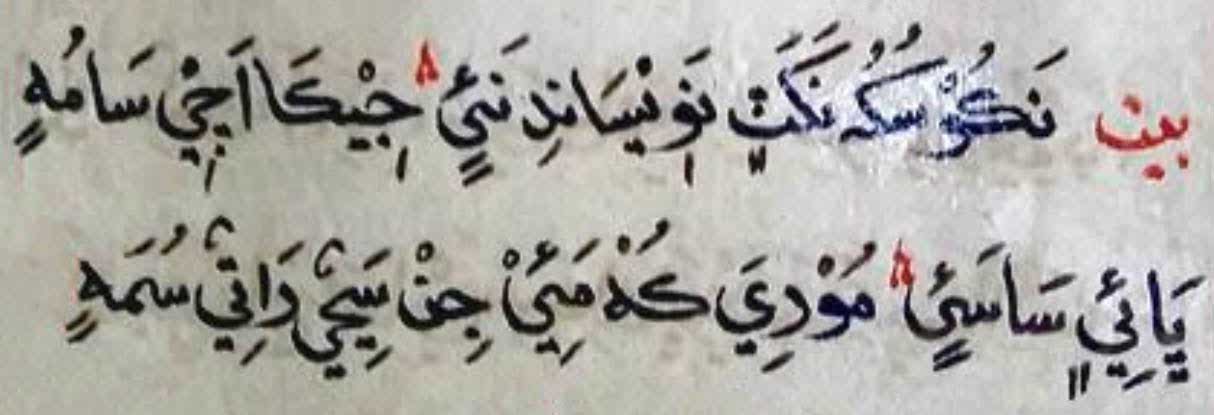 بيت نَكُنْ سَكُه نَكَتٍ نَوِ نِيسَانْدِ نَئٍي ۸ جِيْكَا اَچِي سَامُهٍ
يَائِي سَاسَئٍي ۸ مُوْدِيَ كُنْ مَئِيْ جِنْ سَچِيْ دَاتِيْ سُمَهٍ